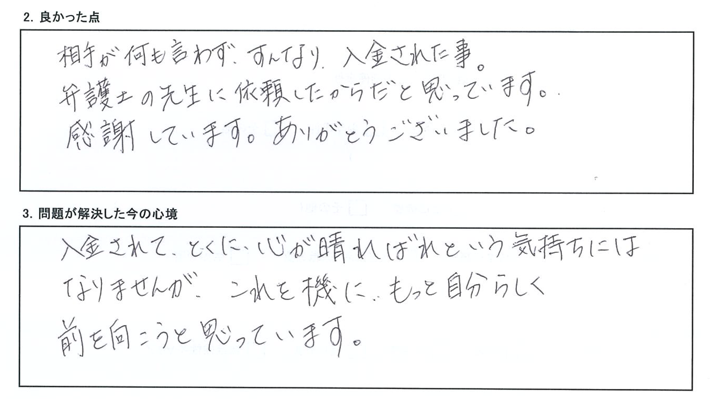 2. 良かった点
相手が何も言わず、すんなり、入金された事。
弁護士の先生に依頼したからだと思っています。
感謝しています。ありがとうございました。
3. 問題が解決した今の心境
入金されて、とくに、心が晴ればれという気持ちには
なりませんが、これを機に、もっと自分らしく
前を向こうと思っています。